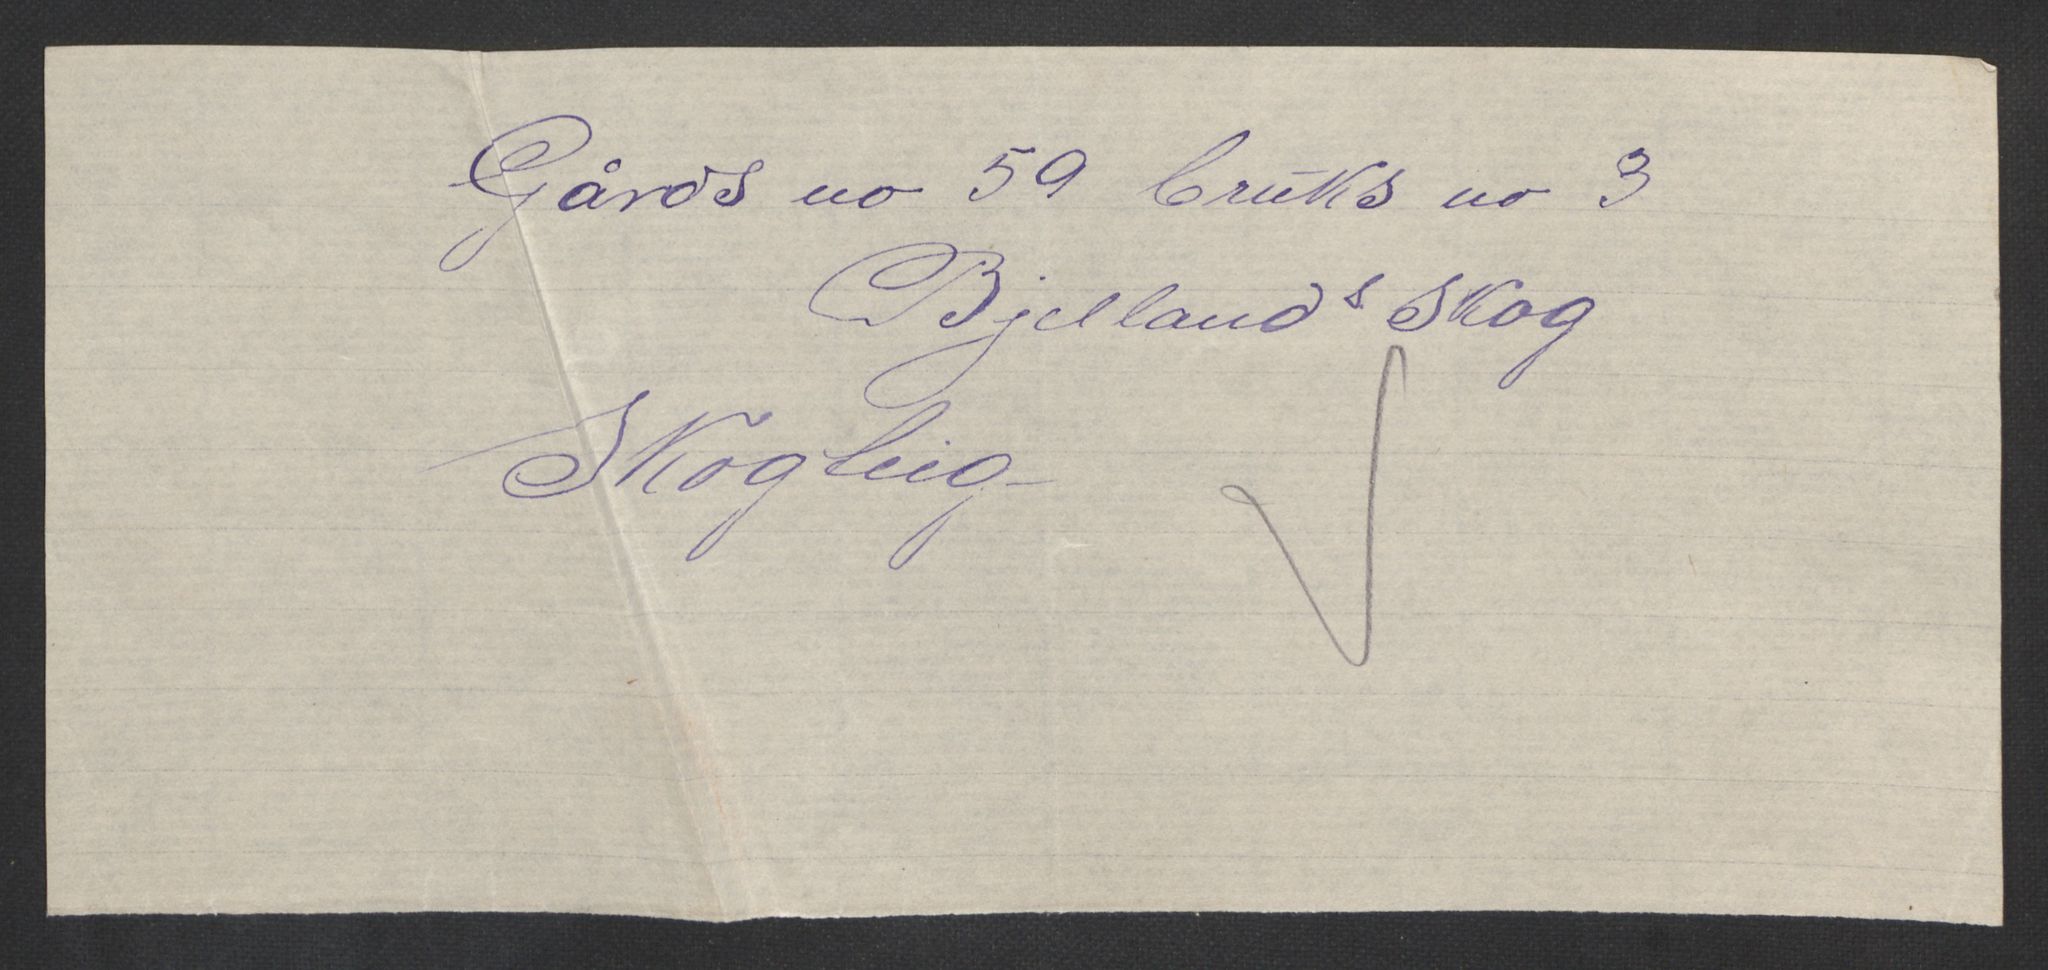 Gårds no 59 bruks no 3
Bjellands skog
Skogheig